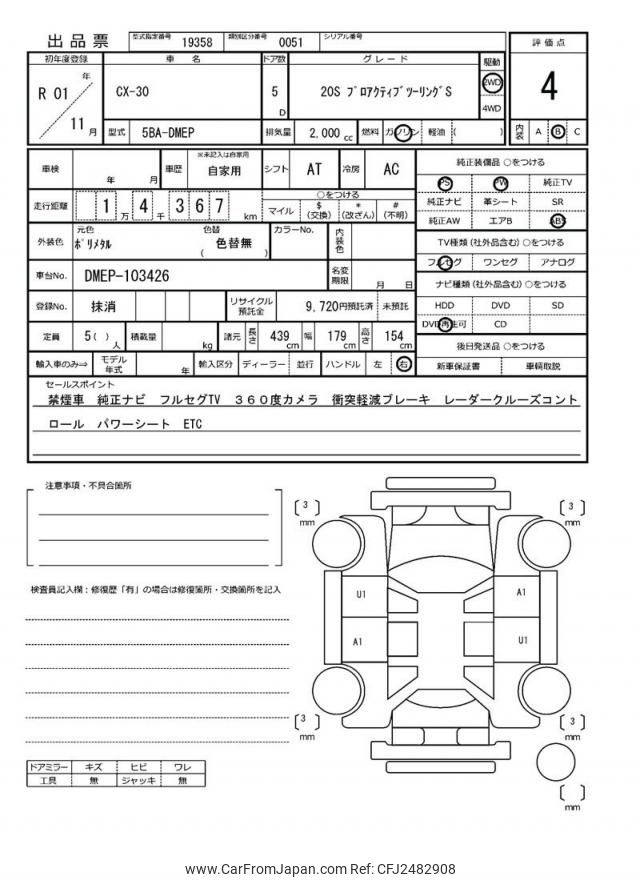 出品票 型式指定番号 19358 類別区分番号 0051 シリアル番号
初年度登録 車 名 ドア数 グレード 駆動 評価点
R 01 年 11 月 CX-30 5 D 20S プロアクティブツーリングS 2WD 4WD 4
型式 5BA-DMEP 排気量 2,000 cc 燃料 ガソリン 軽油 ( ) 内装 A B C
車検 年 月 車歴 ※未記入は自家用 自家用 シフト AT 冷房 AC
走行距離 1 万 4 千 3 6 7 km ○をつける マイル $ (交換) * (改ざん) # (不明)
外装色 元色 ポリメタル 色替 ( 色替無 ) カラーNo. 内装色
車台No. DMEP-103426 名変期限 月 日
登録No. 抹消 リサイクル預託金 9,720円預託済 未預託
定員 5( ) 人 積載量 kg 諸元 長さ 439 cm 幅 179 cm 高さ 154 cm
輸入車のみ⇒ モデル年式 年 輸入区分 ディーラー 並行 ハンドル 左 右
純正装備品 ○をつける
PS PW 純正TV
純正ナビ 革シート SR
純正AW エアB ABS
TV種類 (社外品含む) ○をつける
フルセグ ワンセグ アナログ
ナビ種類 (社外品含む) ○をつける
HDD DVD SD
DVD再生可 CD
後日発送品 ○をつける
新車保証書 車輌取説
セールスポイント
禁煙車 純正ナビ フルセグTV 360度カメラ 衝突軽減ブレーキ レーダークルーズコント
ロール パワーシート ETC
注意事項・不具合箇所
検査員記入欄：修復歴「有」の場合は修復箇所・交換箇所を記入
ドアミラー キズ ヒビ ワレ
工具 無 ジャッキ 無
3 mm 3 mm
U1 A1
A1 U1
3 mm 3 mm
mm
www.CarFromJapan.com Ref: CFJ2482908